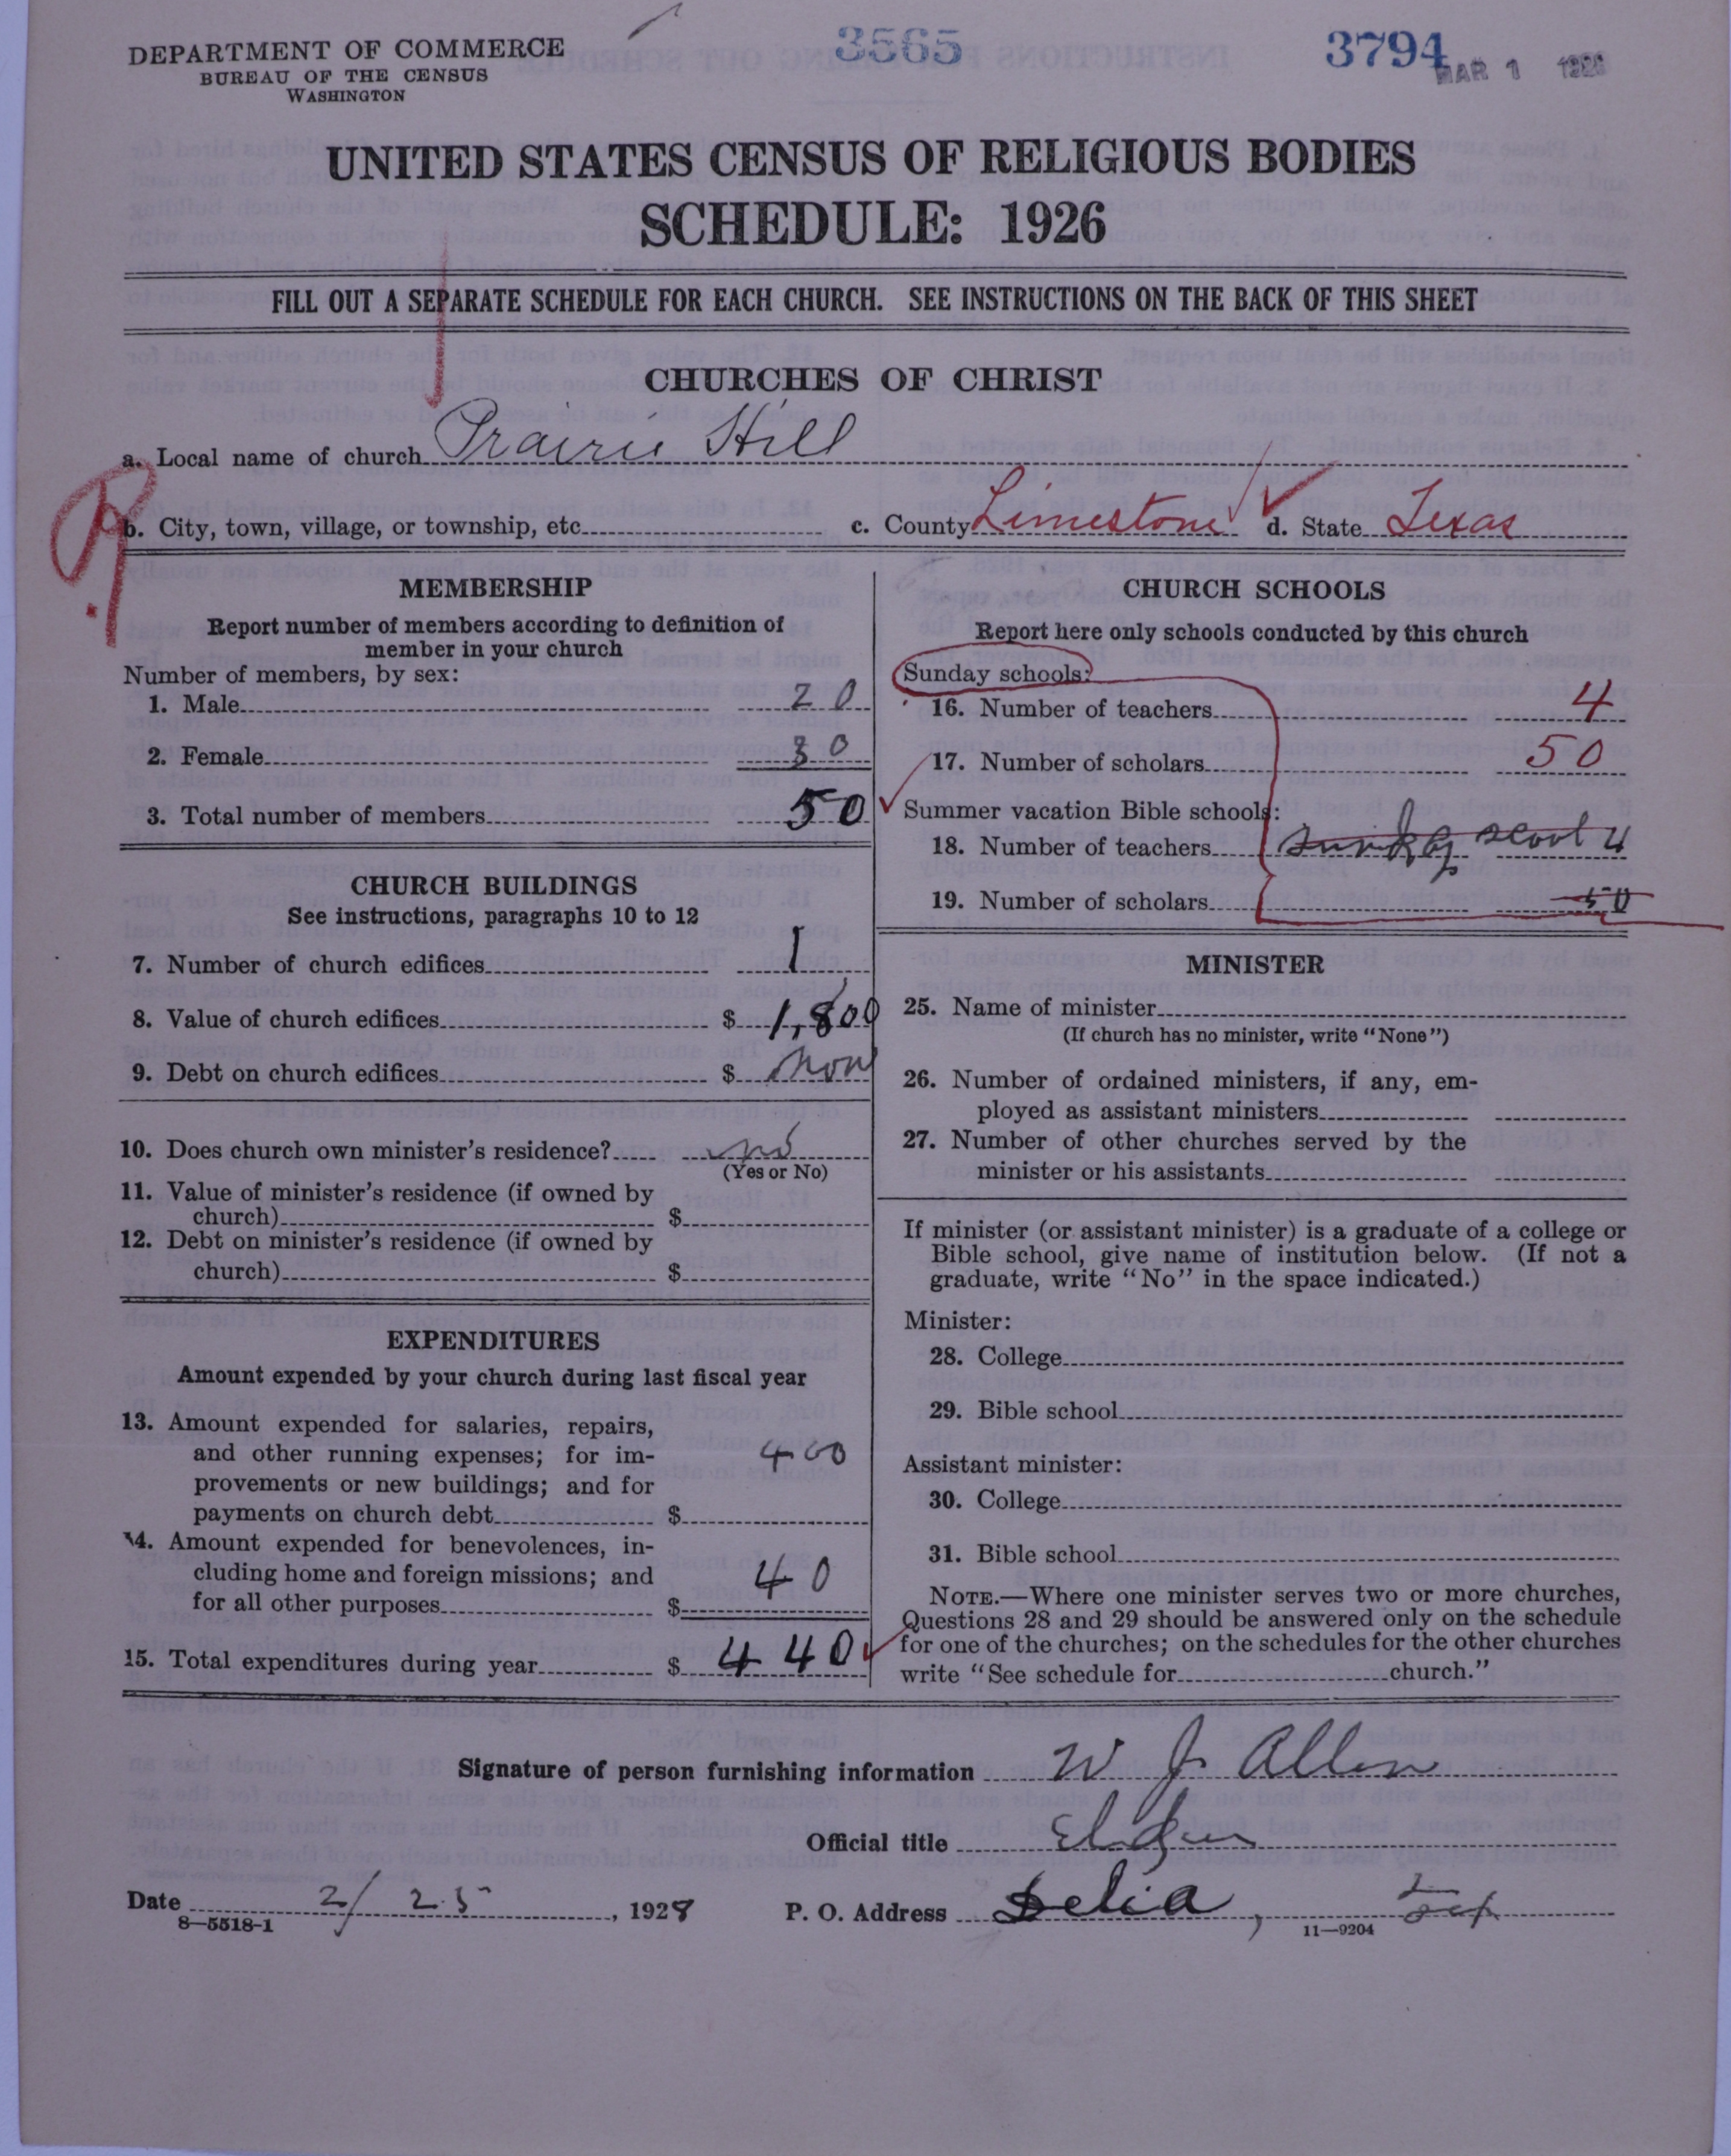 DEPARTMENT OF COMMERCE
BUREAU OF THE CENSUS
WASHINGTON
3565
3794
MAR 1 1928
UNITED STATES CENSUS OF RELIGIOUS BODIES
SCHEDULE: 1926
FILL OUT A SEPARATE SCHEDULE FOR EACH CHURCH. SEE INSTRUCTIONS ON THE BACK OF THIS SHEET
CHURCHES OF CHRIST
a. Local name of church Prairie Hill
R
b. City, town, village, or township, etc. c. County Limestone d. State Texas
MEMBERSHIP
Report number of members according to definition of
member in your church
Number of members, by sex:
1. Male 20
2. Female 30
3. Total number of members 50
CHURCH BUILDINGS
See instructions, paragraphs 10 to 12
7. Number of church edifices 1
8. Value of church edifices $ 1,800
9. Debt on church edifices $ non
10. Does church own minister's residence? no
(Yes or No)
11. Value of minister's residence (if owned by
church) $
12. Debt on minister's residence (if owned by
church) $
EXPENDITURES
Amount expended by your church during last fiscal year
13. Amount expended for salaries, repairs,
and other running expenses; for im-
provements or new buildings; and for
payments on church debt $ 400
14. Amount expended for benevolences, in-
cluding home and foreign missions; and
for all other purposes $ 40
15. Total expenditures during year $ 440
CHURCH SCHOOLS
Report here only schools conducted by this church
Sunday schools:
16. Number of teachers 4
17. Number of scholars 50
Summer vacation Bible schools:
18. Number of teachers sunday scool 4
19. Number of scholars 50
MINISTER
25. Name of minister
(If church has no minister, write "None")
26. Number of ordained ministers, if any, em-
ployed as assistant ministers
27. Number of other churches served by the
minister or his assistants
If minister (or assistant minister) is a graduate of a college or
Bible school, give name of institution below. (If not a
graduate, write "No" in the space indicated.)
Minister:
28. College
29. Bible school
Assistant minister:
30. College
31. Bible school
NOTE.—Where one minister serves two or more churches,
Questions 28 and 29 should be answered only on the schedule
for one of the churches; on the schedules for the other churches
write "See schedule for church."
Signature of person furnishing information W J Allen
Official title Elder
Date 2/25, 1928 P. O. Address Delia, Tex
8—5518-1 11—9204